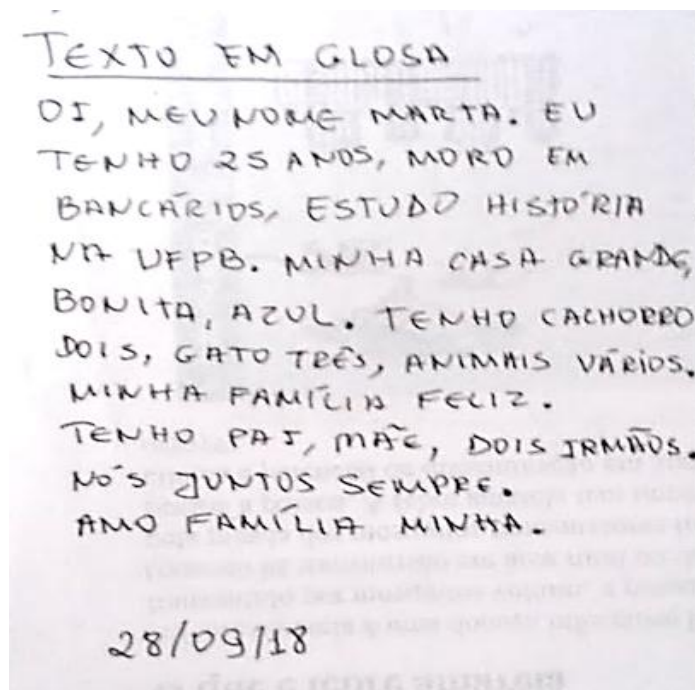 TEXTO EM GLOSA
OI, MEU NOME MARTA. EU
TENHO 25 ANOS, MORO EM
BANCÁRIOS, ESTUDO HISTÓRIA
NA UFPB. MINHA CASA GRANDE,
BONITA, AZUL. TENHO CACHORRO
DOIS, GATO TRÊS, ANIMAIS VÁRIOS.
MINHA FAMÍLIA FELIZ.
TENHO PAI, MÃE, DOIS IRMÃOS.
NÓS JUNTOS SEMPRE.
AMO FAMÍLIA MINHA.
28/09/18